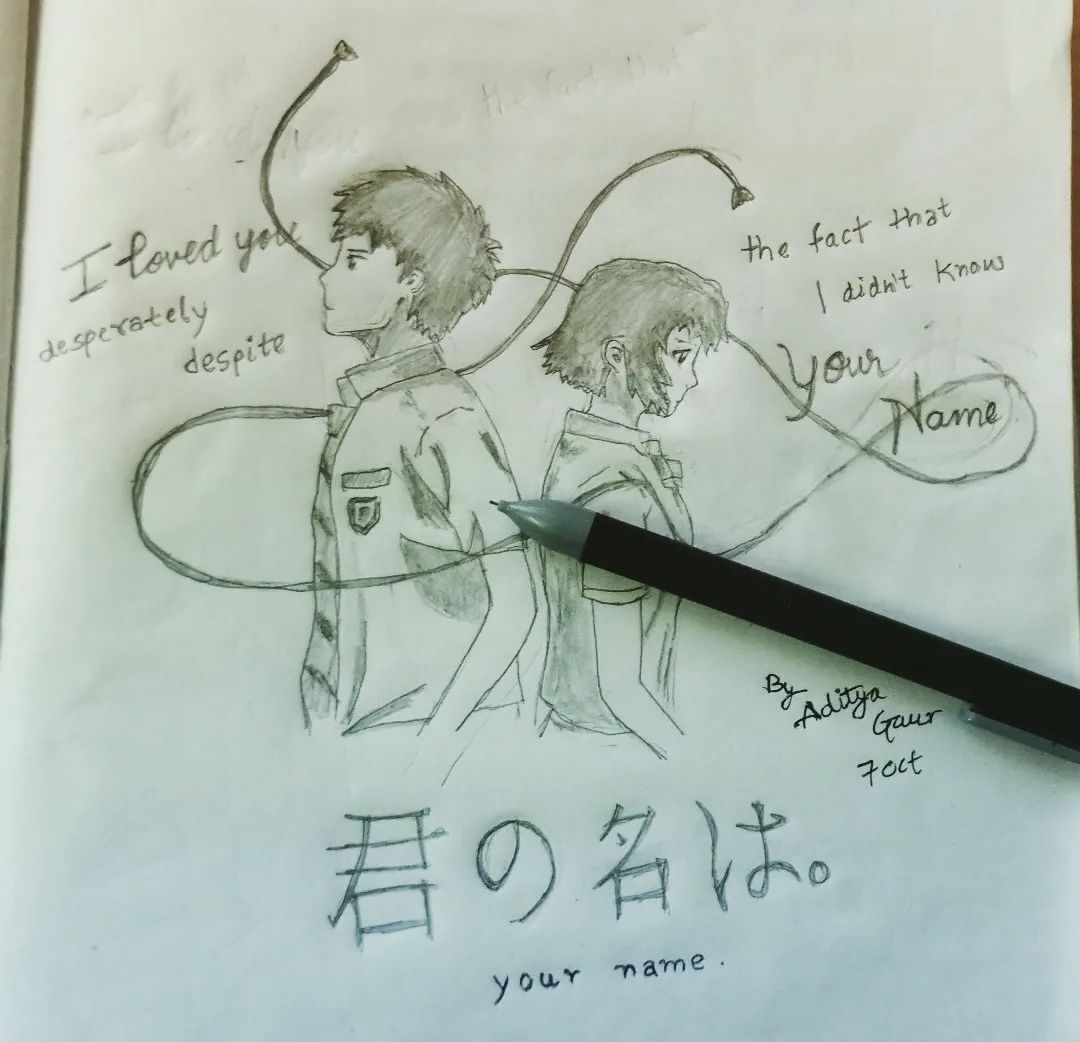 I loved you
desperately
despite
the fact that
I didn't know
your
Name
By
Aditya
Gaur
7 oct
君の名は。
your name.
I loved you
the fact that